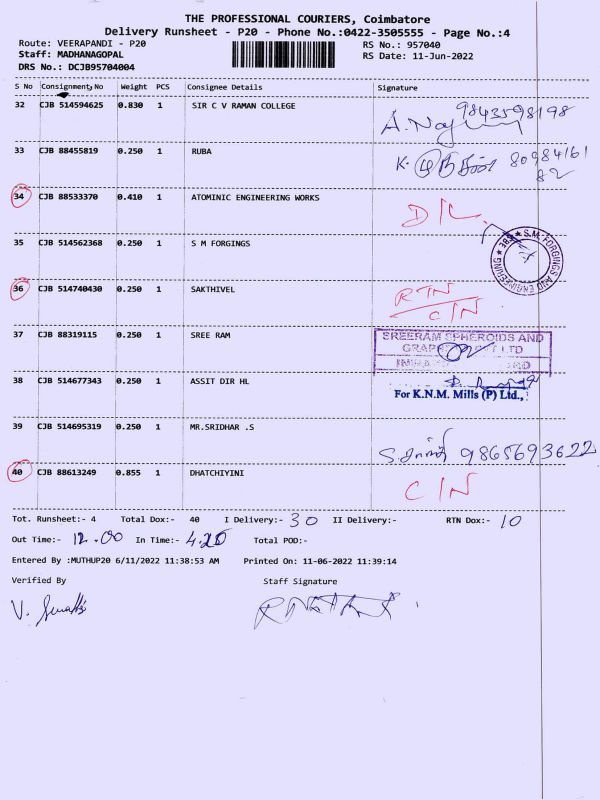 THE PROFESSIONAL COURIERS, Coimbatore
Delivery Runsheet - P20 - Phone No.:0422-3505555 - Page No.:4
Route: VEERAPANDI - P20
RS No.: 957040
Staff: MADHANAGOPAL
RS Date: 11-Jun-2022
DRS No.: DCJB95704004
S No Consignment No Weight PCS Consignee Details Signature
32 CJB 514594625 0.830 1 SIR C V RAMAN COLLEGE 9843598198
33 CJB 88455819 0.250 1 RUBA K. 80984161
82
34 CJB 88533370 0.410 1 ATOMINIC ENGINEERING WORKS D/L
35 CJB 514562368 0.250 1 S M FORGINGS S.M. FORGINGS AND ENGINEERING
36 CJB 514740430 0.250 1 SAKTHIVEL RTN
C/N
37 CJB 88319115 0.250 1 SREE RAM SREERAM SPHEROIDS AND
LTD
38 CJB 514677343 0.250 1 ASSIT DIR HL
For K.N.M. Mills (P) Ltd.,
39 CJB 514695319 0.250 1 MR.SRIDHAR .S 9865693622
40 CJB 88613249 0.855 1 DHATCHIYINI C/N
Tot. Runsheet:- 4 Total Dox:- 40 I Delivery:- 30 II Delivery:- RTN Dox:- 10
Out Time:- 12.00 In Time:- 4.20 Total POD:-
Entered By :MUTHUP20 6/11/2022 11:38:53 AM Printed On: 11-06-2022 11:39:14
Verified By Staff Signature